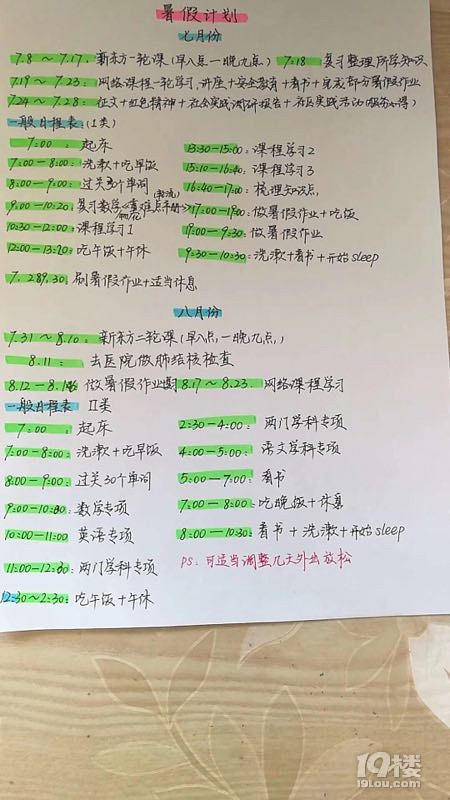 暑假计划
七月份
7.8～7.17：新东方一轮课（早八点—晚九点） 7.18 复习整理所学知识
7.19～7.23：网络课程一轮学习，讲座+安全教育+看书+完成部分暑假作业
7.24～7.28：征文+红色精神+社会实践调研报告+社区实践活动（服务心得）
一般日程表（I类）
7:00：起床
7:00-8:00：洗漱+吃早饭
8:00-9:00：过关30个单词
9:00-10:20：复习数学重难点
10:30-12:00：课程学习1
12:00-13:20：吃午饭+午休
13:30-15:00：课程学习2
15:10-16:40：课程学习3
16:40-17:00：梳理知识点
17:00-19:00：做暑假作业+吃饭
19:00-9:30：做暑假作业
9:30-10:30：洗漱+看书+开始sleep
7.289.30：刷暑假作业+适当休息
八月份
7.31～8.10：新东方二轮课（早八点—晚九点）
8.11：去医院做肺结核检查
8.12-8.16 做暑假作业 8.17～8.23：网络课程学习
一般日程表 II类
7:00：起床
7:00-8:00：洗漱+吃早饭
8:00-9:00：过关30个单词
9:00-10:00：数学专项
10:00-11:00 英语专项
11:00-12:30：两门学科专项
12:30～2:30：吃午饭+午休
2:30-4:00：两门学科专项
4:00-5:00：语文学科专项
5:00-7:00：看书
7:00-8:00：吃晚饭+休息
8:00-10:30：看书+洗漱+开始sleep
PS：可适当调整几天外出放松
19楼
19lou.com